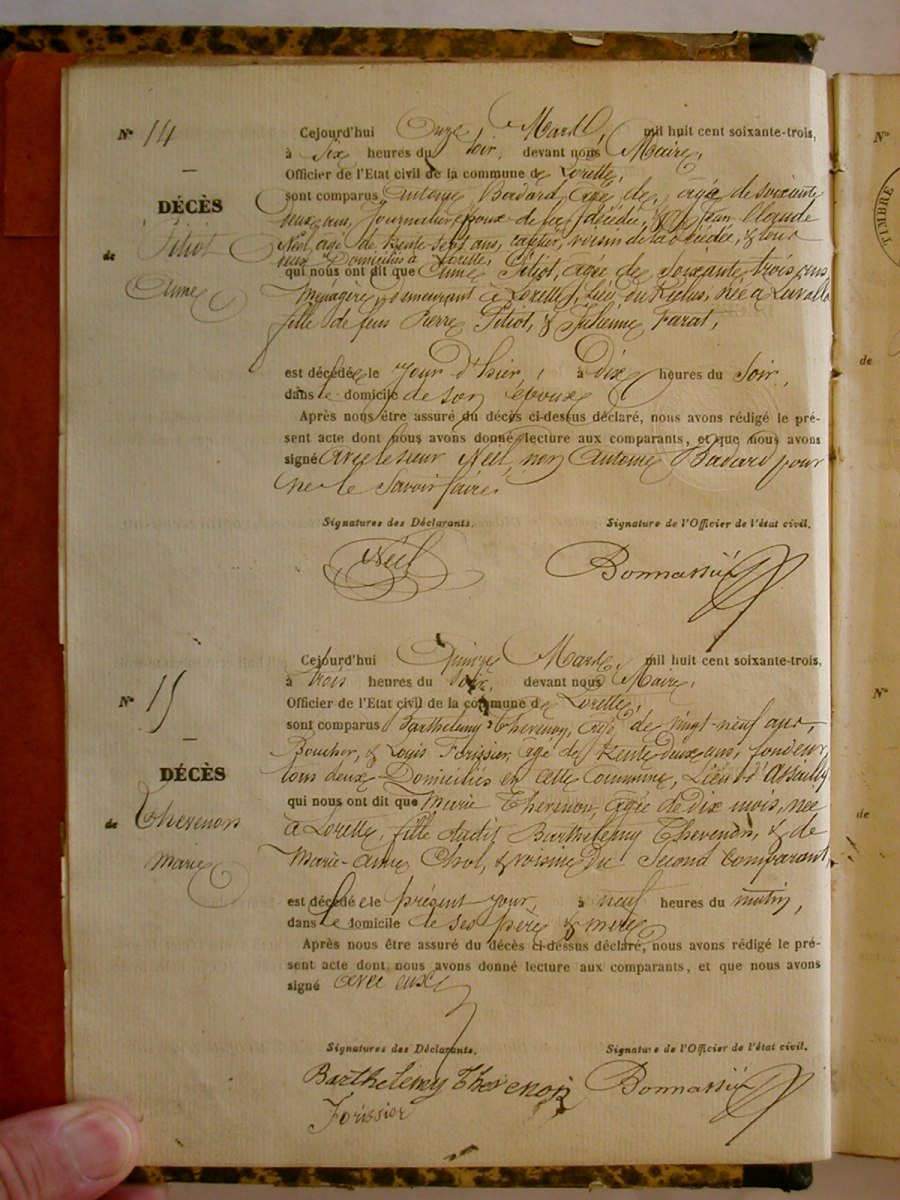 N° 14
Cejourd'hui Onze Mars, mil huit cent soixante-trois,
à Six heures du Soir, devant nous Maire,
Officier de l'Etat civil de la commune de Lorette,
DÉCÈS
sont comparus Antoine Badard, âgé de soixante
deux ans, Journalier, époux de la décédée, & Jean Claude
Néel, âgé de trente sept ans, voisin de la décédée, & tous
deux Domiciliés à Lorette,
de Fitiot
Anne
qui nous ont dit que Anne Fitiot, âgée de soixante trois ans,
Ménagère, demeurant à Lorette, lieu du Reclus, née à
fille de feus Pierre Fitiot, & Julienne Farat,
est décédée le jour d'hier, à Dix heures du Soir,
dans le domicile de son époux
Après nous être assuré du décès ci-dessus déclaré, nous avons rédigé le pré-
sent acte dont nous avons donné lecture aux comparants, et que nous avons
signé avec le sieur Néel, non Antoine Badard pour
ne le Savoir faire.
Signatures des Déclarants. Signature de l'Officier de l'état civil.
Néel Bonnassié
Cejourd'hui Quinze Mars, mil huit cent soixante-trois,
à trois heures du soir, devant nous Maire,
N° 15
Officier de l'Etat civil de la commune de Lorette,
sont comparus Barthelemy Thevenon, âgé de vingt-neuf ans,
Boucher, & Louis Forissier, âgé de trente deux ans, fondeur,
DÉCÈS
tous deux Domiciliés en cette Commune, Lieu d'Assailly
de Thevenon
Marie
qui nous ont dit que Marie Thevenon, âgée de dix mois, née
à Lorette, fille dudit Barthélemy Thevenon, & de
Marie-Anne Chol, & voisine du Second Comparant,
est décédée le présent jour, à neuf heures du matin,
dans le domicile de ses père & mère
Après nous être assuré du décès ci-dessus déclaré, nous avons rédigé le pré-
sent acte dont nous avons donné lecture aux comparants, et que nous avons
signé avec eux
Signatures des Déclarants. Signature de l'Officier de l'état civil.
Barthelemy Thevenon Bonnassié
Forissier
N°
TIMBRE
de
N°
de